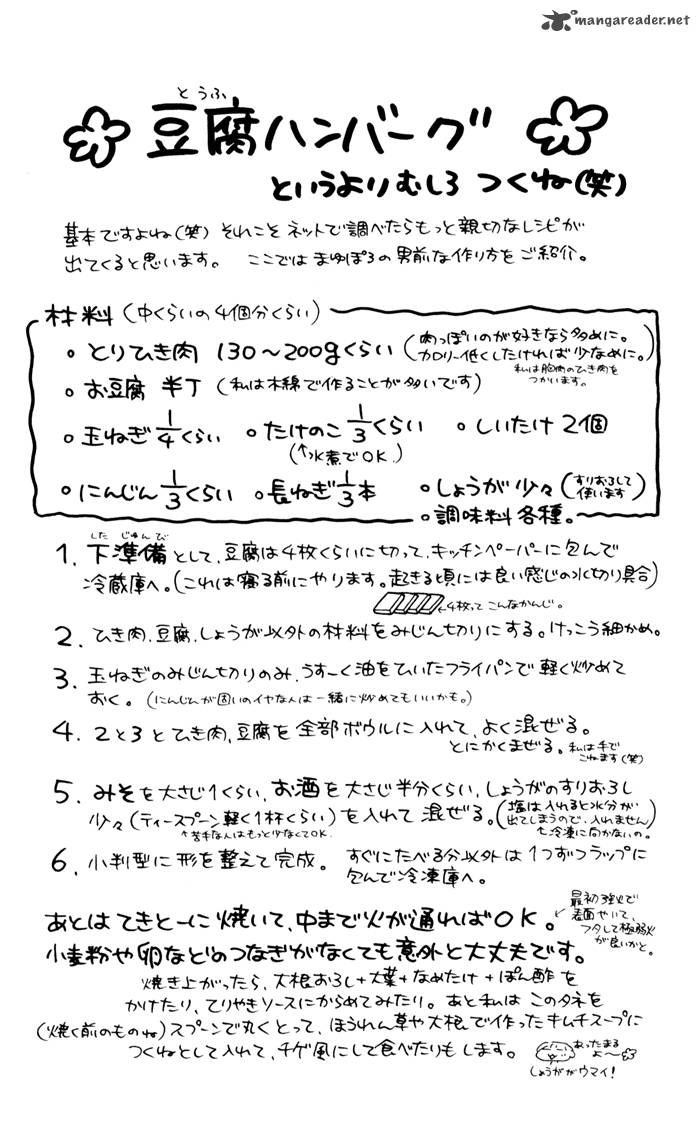 mangareader.net
とうふ
豆腐ハンバーグ
というよりむしろ つくね(笑)
基本ですよね(笑) それこそ ネットで調べたらもっと親切なレシピが
出てくると思います。 ここでは まゆぽろの男前な作り方を ご紹介。
材料(中くらいの4個分くらい)
・とりひき肉 130〜200gくらい(肉っぽいのが好きなら多めに。
カロリー低くしたければ少なめに。)
私は胸肉のひき肉を
つかいます。
・お豆腐 半丁(私は木綿で作ることが多いです)
・玉ねぎ 1/4くらい ・たけのこ 1/3くらい ・しいたけ 2個
(↑水煮でOK.)
・にんじん 1/3くらい ・長ねぎ 1/3本 ・しょうが 少々(すりおろして
使います)
・調味料各種。
したじゅんび
1. 下準備として、豆腐は4枚くらいに切って、キッチンペーパーに包んで
冷蔵庫へ。(これは寝る前にやります。起きる頃には良い感じの水切り具合)
←4枚って こんなかんじ。
2. ひき肉、豆腐、しょうが以外の材料をみじん切りにする。けっこう細かめ。
3. 玉ねぎのみじん切りのみ、うすーく油をひいたフライパンで 軽く炒めて
おく。(にんじんが固いのイヤな人は一緒に炒めてもいいかも。)
4. 2と3とひき肉、豆腐を全部ボウルに入れて、よく混ぜる。
とにかくまぜる。私は手で
こねます(笑)
5. みそを大さじ1くらい、お酒を大さじ半分くらい、しょうがのすりおろし
少々(ティースプーン軽く1杯くらい)を入れて 混ぜる。(塩は入れると水分が
出てしまうので、入れません)
↑苦手な人はもっと少なくてOK.
↑冷凍に向かないの。
6. 小判型に形を整えて完成。 すぐにたべる分以外は1つずつラップに
包んで冷凍庫へ。
あとはてきとーに焼いて、中まで火が通ればOK。
最初強火で
表面やいて、
フタして極弱火
が良いかと。
小麦粉や卵などのつなぎがなくても意外と大丈夫です。
焼き上がったら、大根おろし+大葉+なめたけ+ぽん酢を
かけたり、てりやきソースにからめてみたり。あと私は このタネを
(焼く前のものね)スプーンで丸くとって、ほうれん草や大根で作ったキムチスープに
つくねとして入れて、チゲ風にして食べたりもします。
あったまる
よ〜
しょうががウマイ!